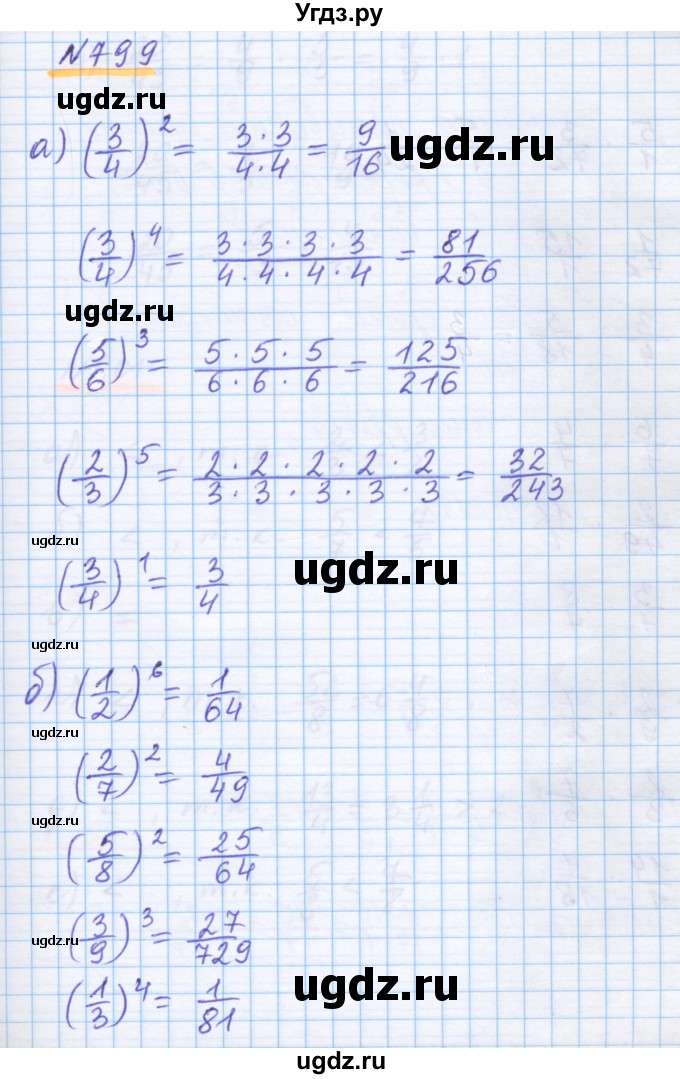 Угдз.ру
N799
ugdz.ru
а) (3/4)^2 = 3·3/4·4 = 9/16 ugdz.ru
(3/4)^4 = 3·3·3·3/4·4·4·4 = 81/256
ugdz.ru
(5/6)^3 = 5·5·5/6·6·6 = 125/216
(2/3)^5 = 2·2·2·2·2/3·3·3·3·3 = 32/243
ugdz.ru
(3/4)^1 = 3/4 ugdz.ru
ugdz.ru
б) (1/2)^6 = 1/64
ugdz.ru
(2/7)^2 = 4/49
ugdz.ru
(5/8)^2 = 25/64
(3/9)^3 = 27/729
ugdz.ru
(1/3)^4 = 1/81 ugdz.ru
ugdz.ru